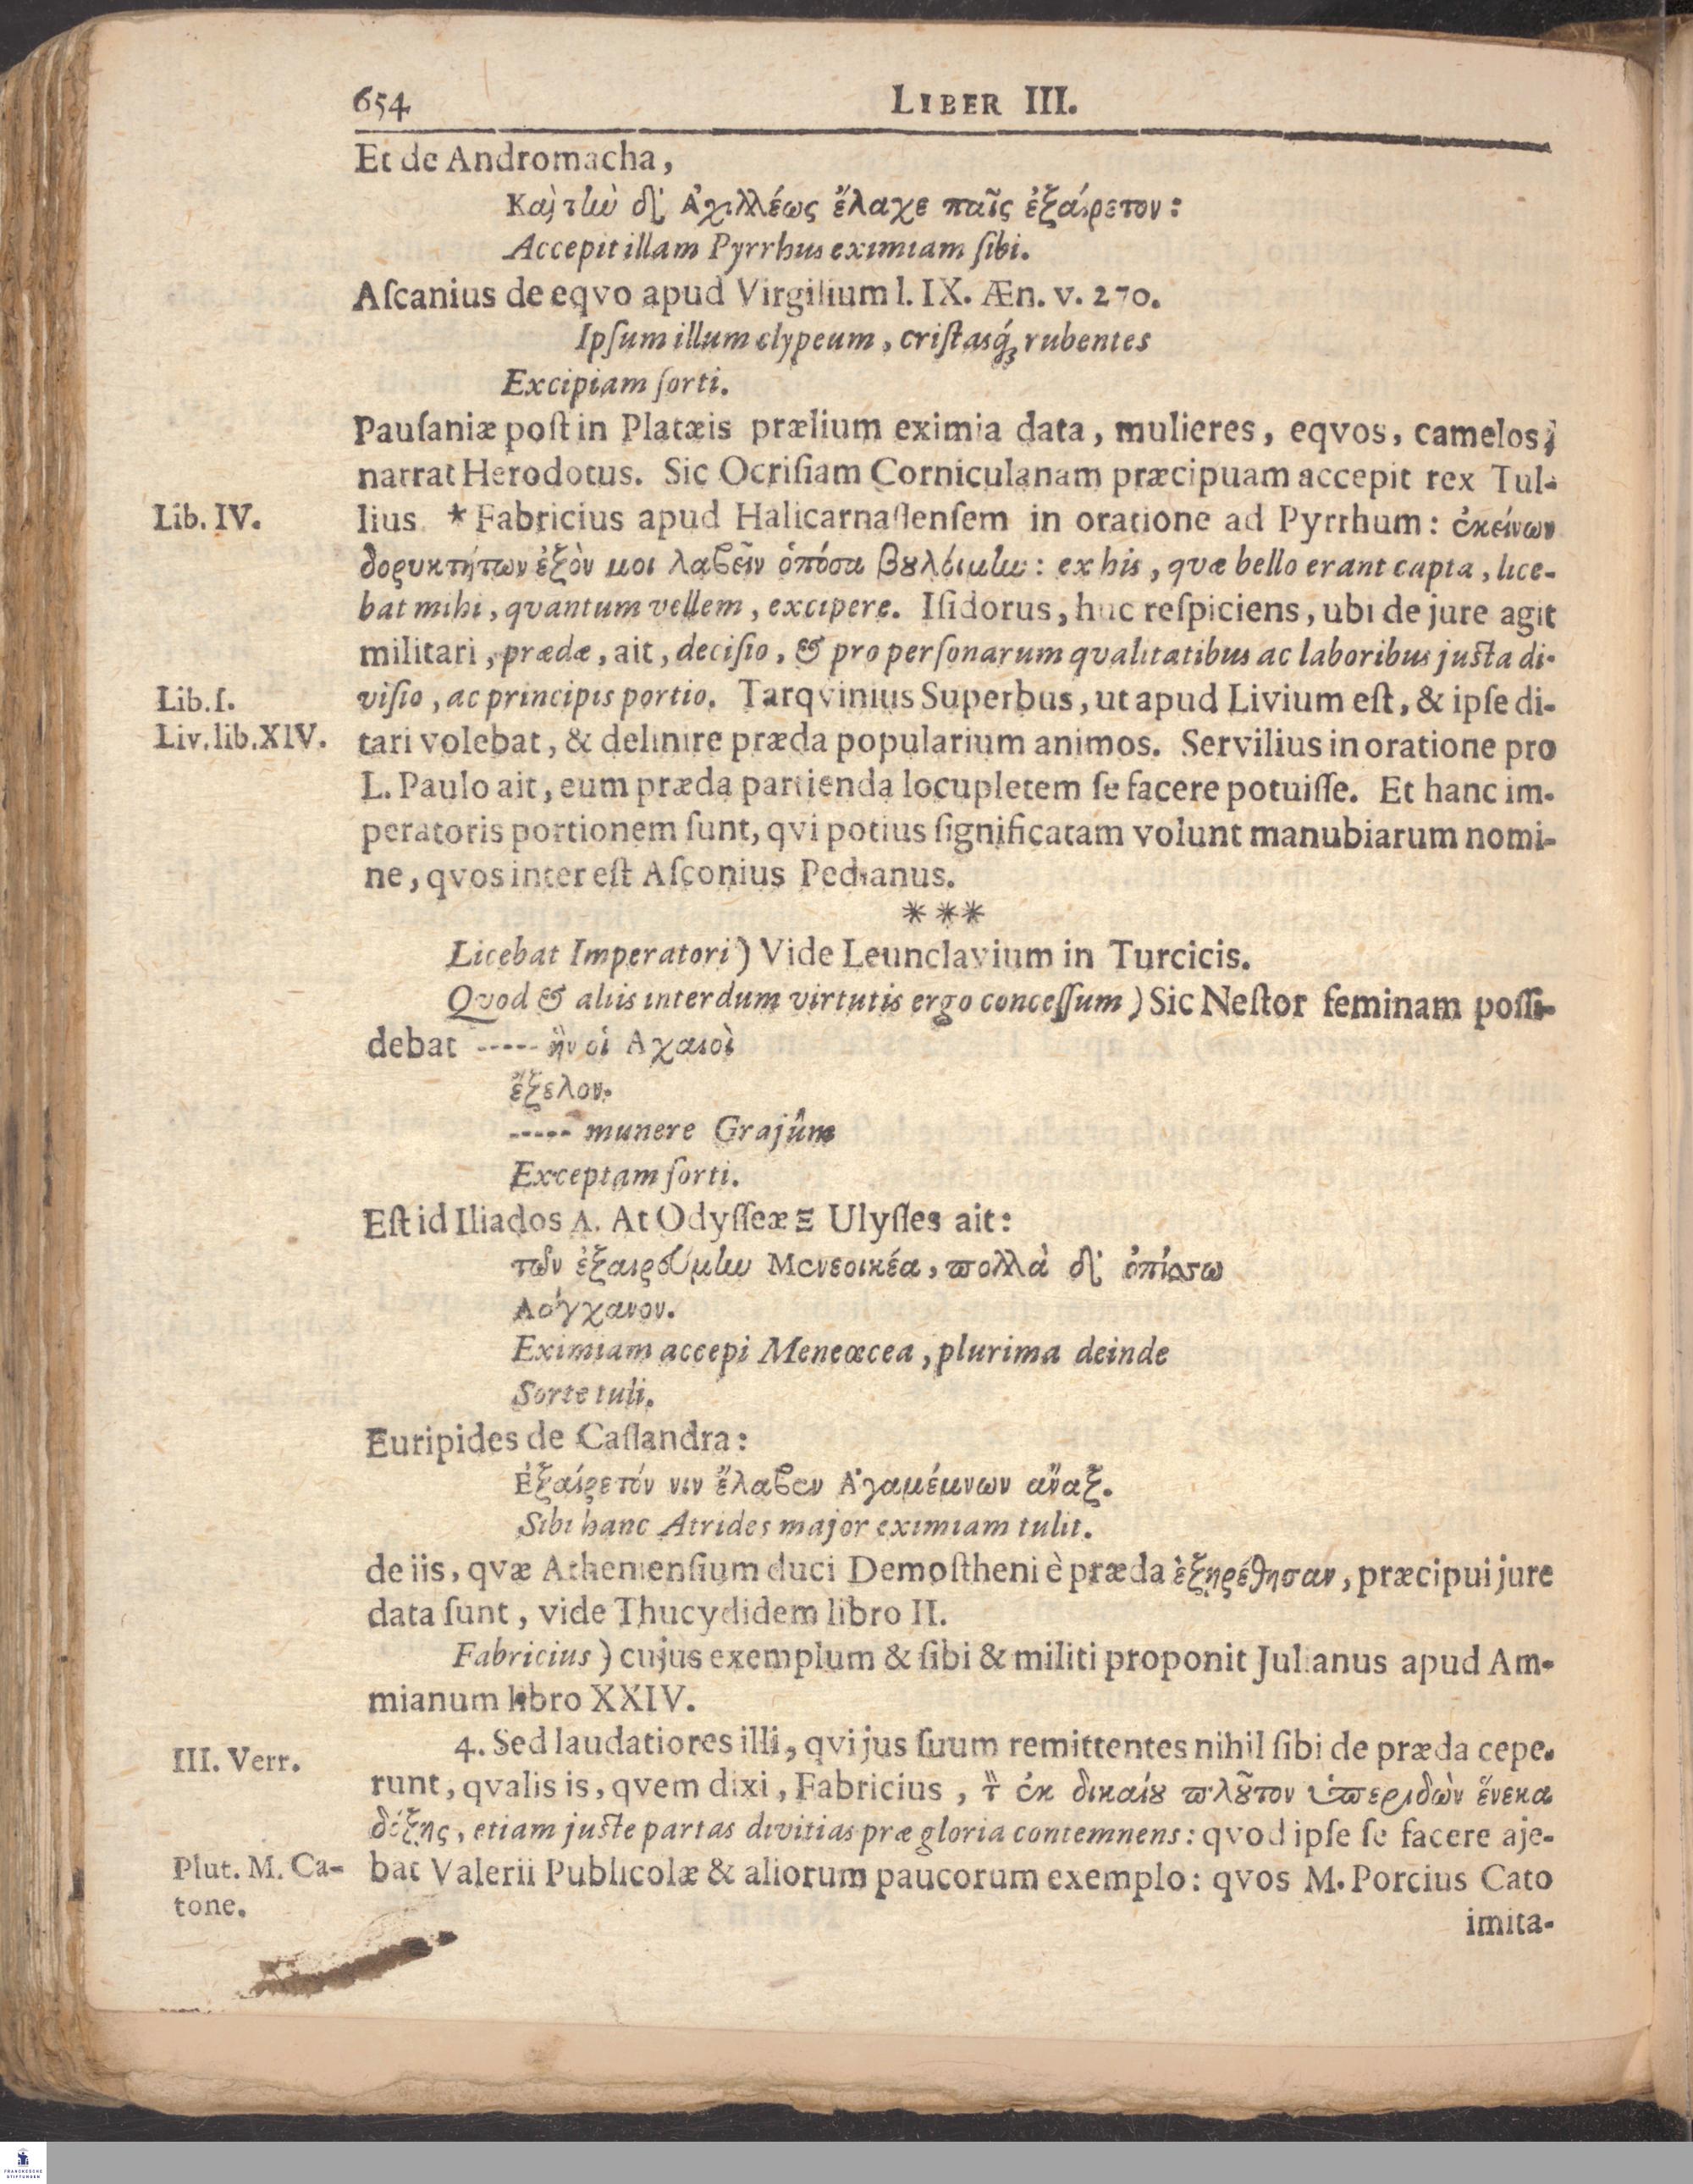 654 LIBER III.
Et de Andromacha,
Καὶ τὴν δ' Ἀχιλλέως ἔλαχε παῖς ἐξαίρετον:
Accepit illam Pyrrhus eximiam ſibi.
Aſcanius de eqvo apud Virgilium l. IX. Æn. v. 270.
Ipſum illum clypeum, criſtasq́; rubentes
Excipiam ſorti.
Pauſaniæ poſt in Platæis prælium eximia data, mulieres, eqvos, camelos;
narrat Herodotus. Sic Ocriſiam Corniculanam præcipuam accepit rex Tul-
Lib. IV. lius. * Fabricius apud Halicarnaſſenſem in oratione ad Pyrrhum: ἐκείνων
δορυκτήτων ἐξὸν μοι λαβεῖν ὁπόσα βουλοίμην: ex his, qvæ bello erant capta, lice-
bat mihi, qvantum vellem, excipere. Iſidorus, huc reſpiciens, ubi de jure agit
militari, prædæ, ait, deciſio, & pro perſonarum qvalitatibus ac laboribus juſta di-
Lib. I. viſio, ac principis portio. Tarqvinius Superbus, ut apud Livium eſt, & ipſe di-
Liv. lib. XlV. tari volebat, & delinire præda popularium animos. Servilius in oratione pro
L. Paulo ait, eum præda partienda locupletem ſe facere potuiſſe. Et hanc im-
peratoris portionem ſunt, qvi potius ſignificatam volunt manubiarum nomi-
ne, qvos inter eſt Aſconius Pedianus.
***
Licebat Imperatori) Vide Leunclavium in Turcicis.
Qvod & aliis interdum virtutis ergo conceſſum) Sic Neſtor feminam poſſi-
debat ----- ἣν οἱ Αχαιοὶ
ἔξελον.
----- munere Grajûm
Exceptam ſorti.
Eſt id Iliados Λ. At Odyſſeæ Ξ Ulyſſes ait:
τῶν ἐξαιρούμην Μενεοικέα, πολλὰ δ' ὀπίσσω
Λάγχανον.
Eximiam accepi Meneœcea, plurima deinde
Sorte tuli.
Euripides de Caſſandra:
Ἐξαίρετόν νιν ἔλαβεν Ἀγαμέμνων ἄναξ.
Sibi hanc Atrides major eximiam tulit.
de iis, qvæ Athenienſium duci Demoſtheni è præda ἐξῃρέθησαν, præcipui jure
data ſunt, vide Thucydidem libro II.
Fabricius) cujus exemplum & ſibi & militi proponit Julianus apud Am-
mianum libro XXIV.
4. Sed laudatiores illi, qvi jus ſuum remittentes nihil ſibi de præda cepe-
III. Verr. runt, qvalis is, qvem dixi, Fabricius, τὸν ἐκ δικαίου πλοῦτον ὑπεριδὼν ἕνεκα
δόξης, etiam juſte partas divitias præ gloria contemnens: qvod ipſe ſe facere aje-
Plut. M. Ca- bat Valerii Publicolæ & aliorum paucorum exemplo: qvos M. Porcius Cato
tone.
imita-
FRANCKESCHE
STIFTUNGEN